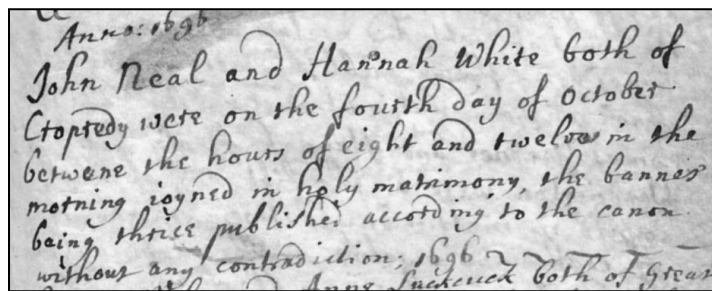 Anno: 1696
John Neal and Hannah White both of
Cropredy were on the fourth day of October
betwene the hours of eight and twelve in the
morning ioyned in holy matrimony, the bannes
being thrice published according to the canon
without any contradiction; 1696
Anne Suckuck both of Great